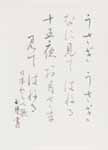 うさぎ うさぎ
なに見てはねる
十五夜お月さま
見てはねる